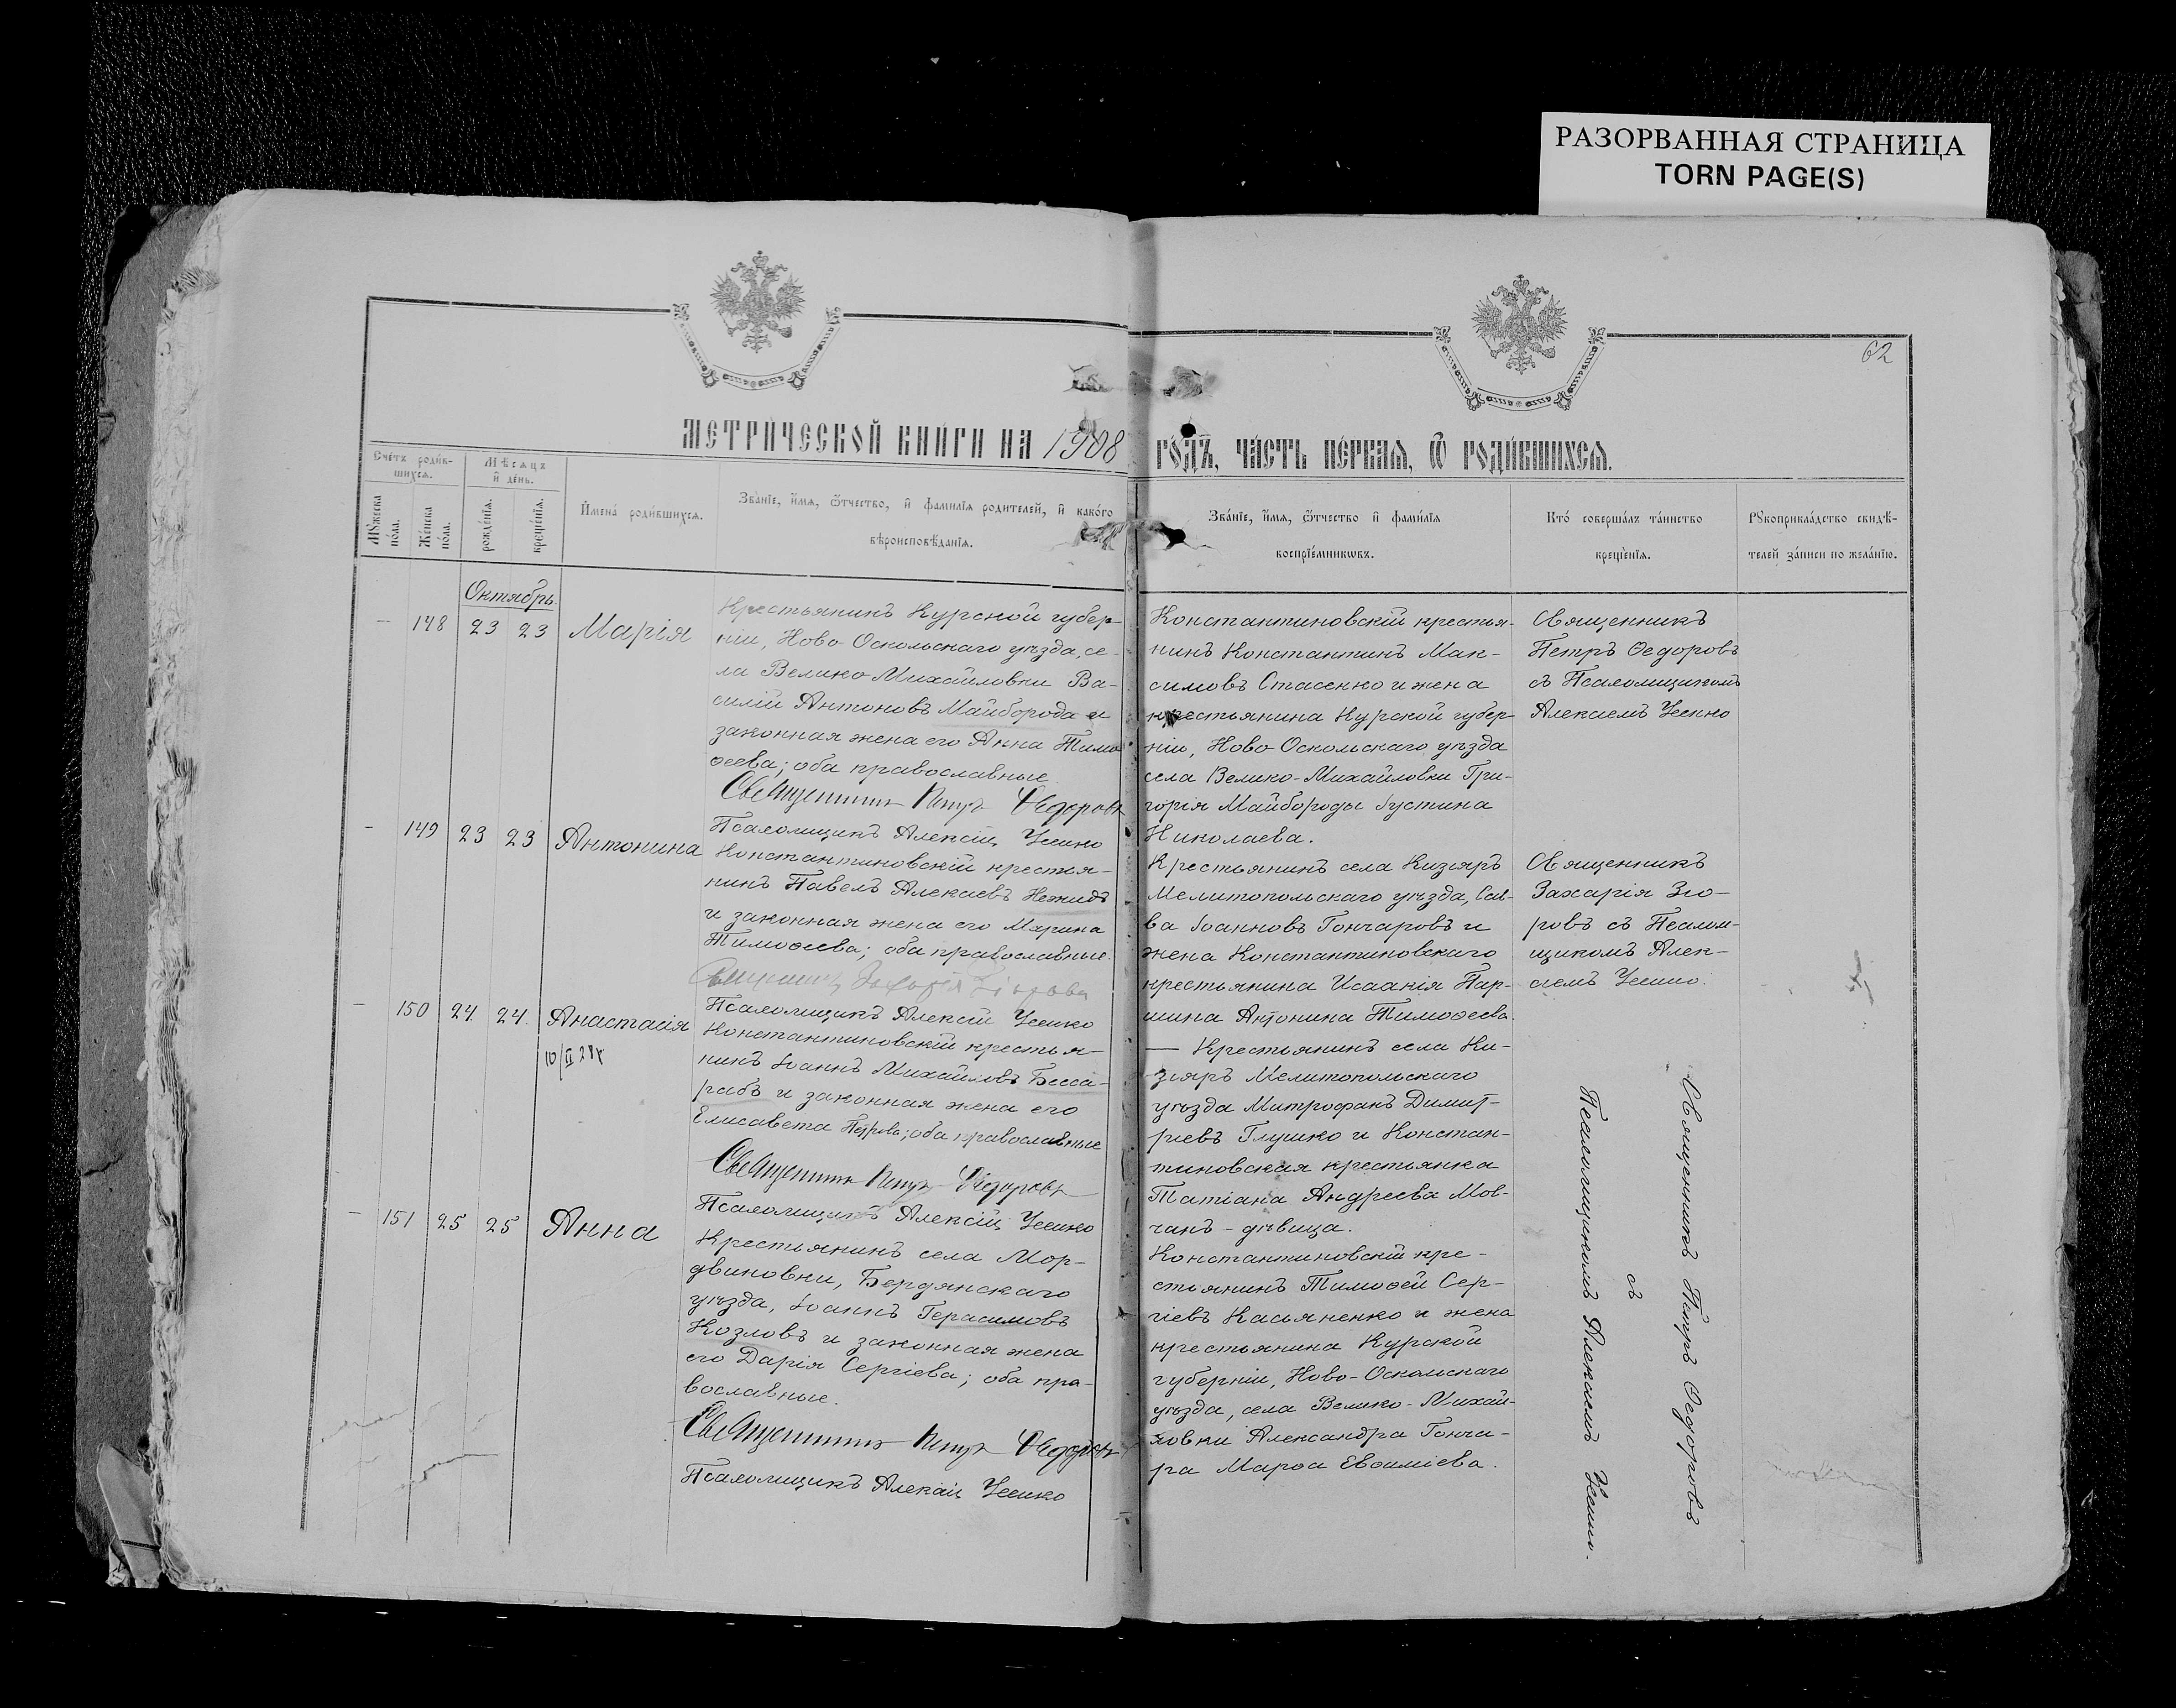 РАЗОРВАННАЯ СТРАНИЦА
TORN PAGE(S)
62
МЕТРИЧЕСКОЙ КНИГИ НА 1908 ГОДЪ, ЧАСТЬ ПЕРВАЯ, Ѿ РОДИВШИХСЯ.
Счетъ родив-
шихся.
Мѣсяцъ
и день.
Мꙋжеска
пола.
Женска
пола.
рожденїя.
крещенїя.
Имена родившихся.
Званїе, имя, ѿтчество, и фамилїя родителей, и какого
вѣроисповѣданїя.
Званїе, имя, ѿтчество и фамилїя
воспрїемниковъ.
Кто совершалъ таинство
крещенїя.
Рꙋкоприкладство свидѣ-
телей записи по желанїю.
Октябрь
- 148 23 23 Марія
Крестьянинъ Курской губер-
ніи, Ново-Оскольскаго уѣзда, се-
ла Велико-Михайловки Ва-
силій Антоновъ Майборода и
законная жена его Анна Тимо-
ѳеева; оба православные.
Священникъ Петръ Ѳедоровъ
Псаломщикъ Алексій Усенко
Константиновскій крестья-
нинъ Константинъ Мак-
симовъ Стасенко и жена
крестьянина Курской губер-
ніи, Ново-Оскольскаго уѣзда
села Велико-Михайловки Гри-
горія Майбороды Іустина
Николаева.
Священникъ
Петръ Ѳедоровъ
съ Псаломщикомъ
Алексіемъ Усенко
- 149 23 23 Антонина
Константиновскій крестья-
нинъ Павелъ Алексіевъ
и законная жена его Марина
Тимоѳеева; оба православные.
Священникъ Захарія
Псаломщикъ Алексій Усенко
Крестьянинъ села Кизіяръ
Мелитопольскаго уѣзда, Сав-
ва Іоанновъ Гончаровъ и
жена Константиновскаго
крестьянина Исаакія Пар-
шина Антонина Тимоѳеева.
Священникъ
Захарія Зіо-
ровъ съ Псалом-
щикомъ Алек-
сіемъ Усенко.
- 150 24 24 Анастасія
Константиновскій крестья-
нинъ Іоаннъ Михайловъ Бесса-
рабъ и законная жена его
Елисавета Петрова; оба православные
Священникъ Петръ Ѳедоровъ
Псаломщикъ Алексій Усенко
— Крестьянинъ села Ки-
зіяръ Мелитопольскаго
уѣзда Митрофанъ Димит-
ріевъ Глушко и Констан-
тиновская крестьянка
Татіана Андреева Мов-
чанъ - дѣвица.
- 151 25 25 Анна
Крестьянинъ села Мор-
двиновки, Бердянскаго
уѣзда, Іоаннъ Герасимовъ
Козловъ и законная жена
его Дарія Сергіева; оба пра-
вославные.
Священникъ Петръ Ѳедоровъ
Псаломщикъ Алексій Усенко
Константиновскій кре-
стьянинъ Тимоѳей Сер-
гіевъ Касьяненко и жена
крестьянина Курской
губерніи, Ново-Оскольскаго
уѣзда, села Велико-Михай-
ловки Александра Гонча-
ра Марѳа Евѳиміева.
Священникъ Петръ Ѳедоровъ
съ
Псаломщикомъ Алексіемъ Усенко.